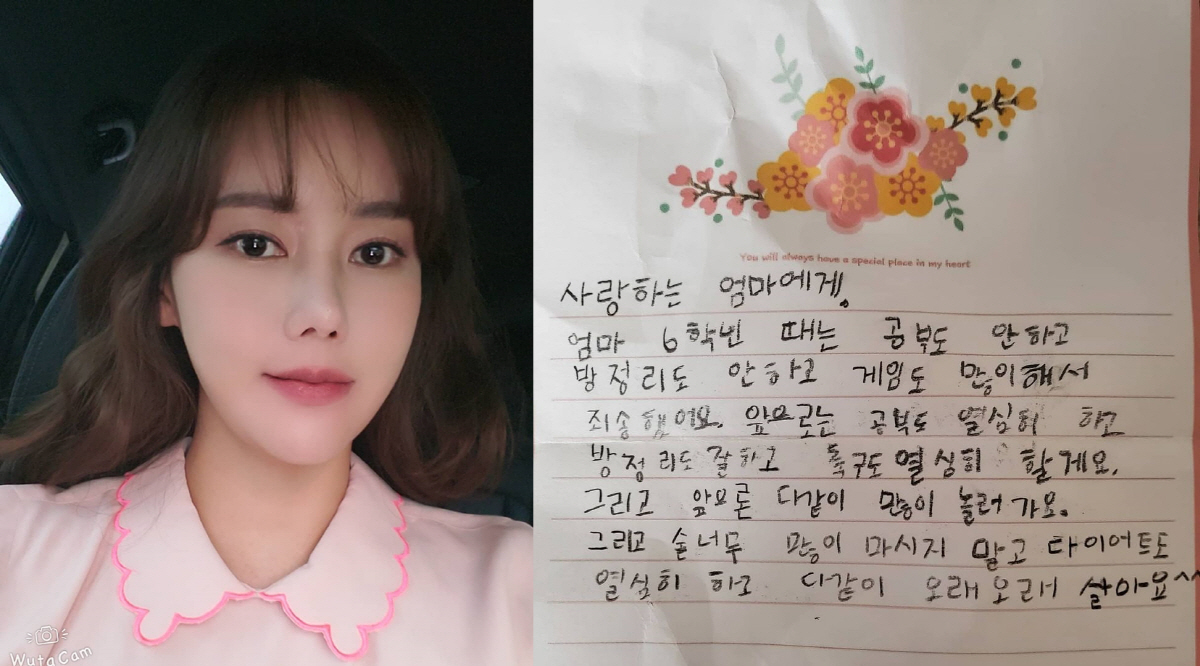 You will always have a special place in my heart
사랑하는 엄마에게.
엄마 6학년 때는 공부도 안하고
방정리도 안하고 게임도 많이해서
죄송했어요. 앞으로는 공부도 열심히 하고
방정리도 잘하고 축구도 열심히 할게요.
그리고 앞으론 다같이 많이 놀러가요.
그리고 술너무 많이 마시지 말고 다이어트도
열심히 하고 다같이 오래오래 살아요^^
WutaCam